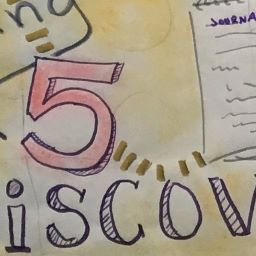 ng
JOURNA
5
iSCOV